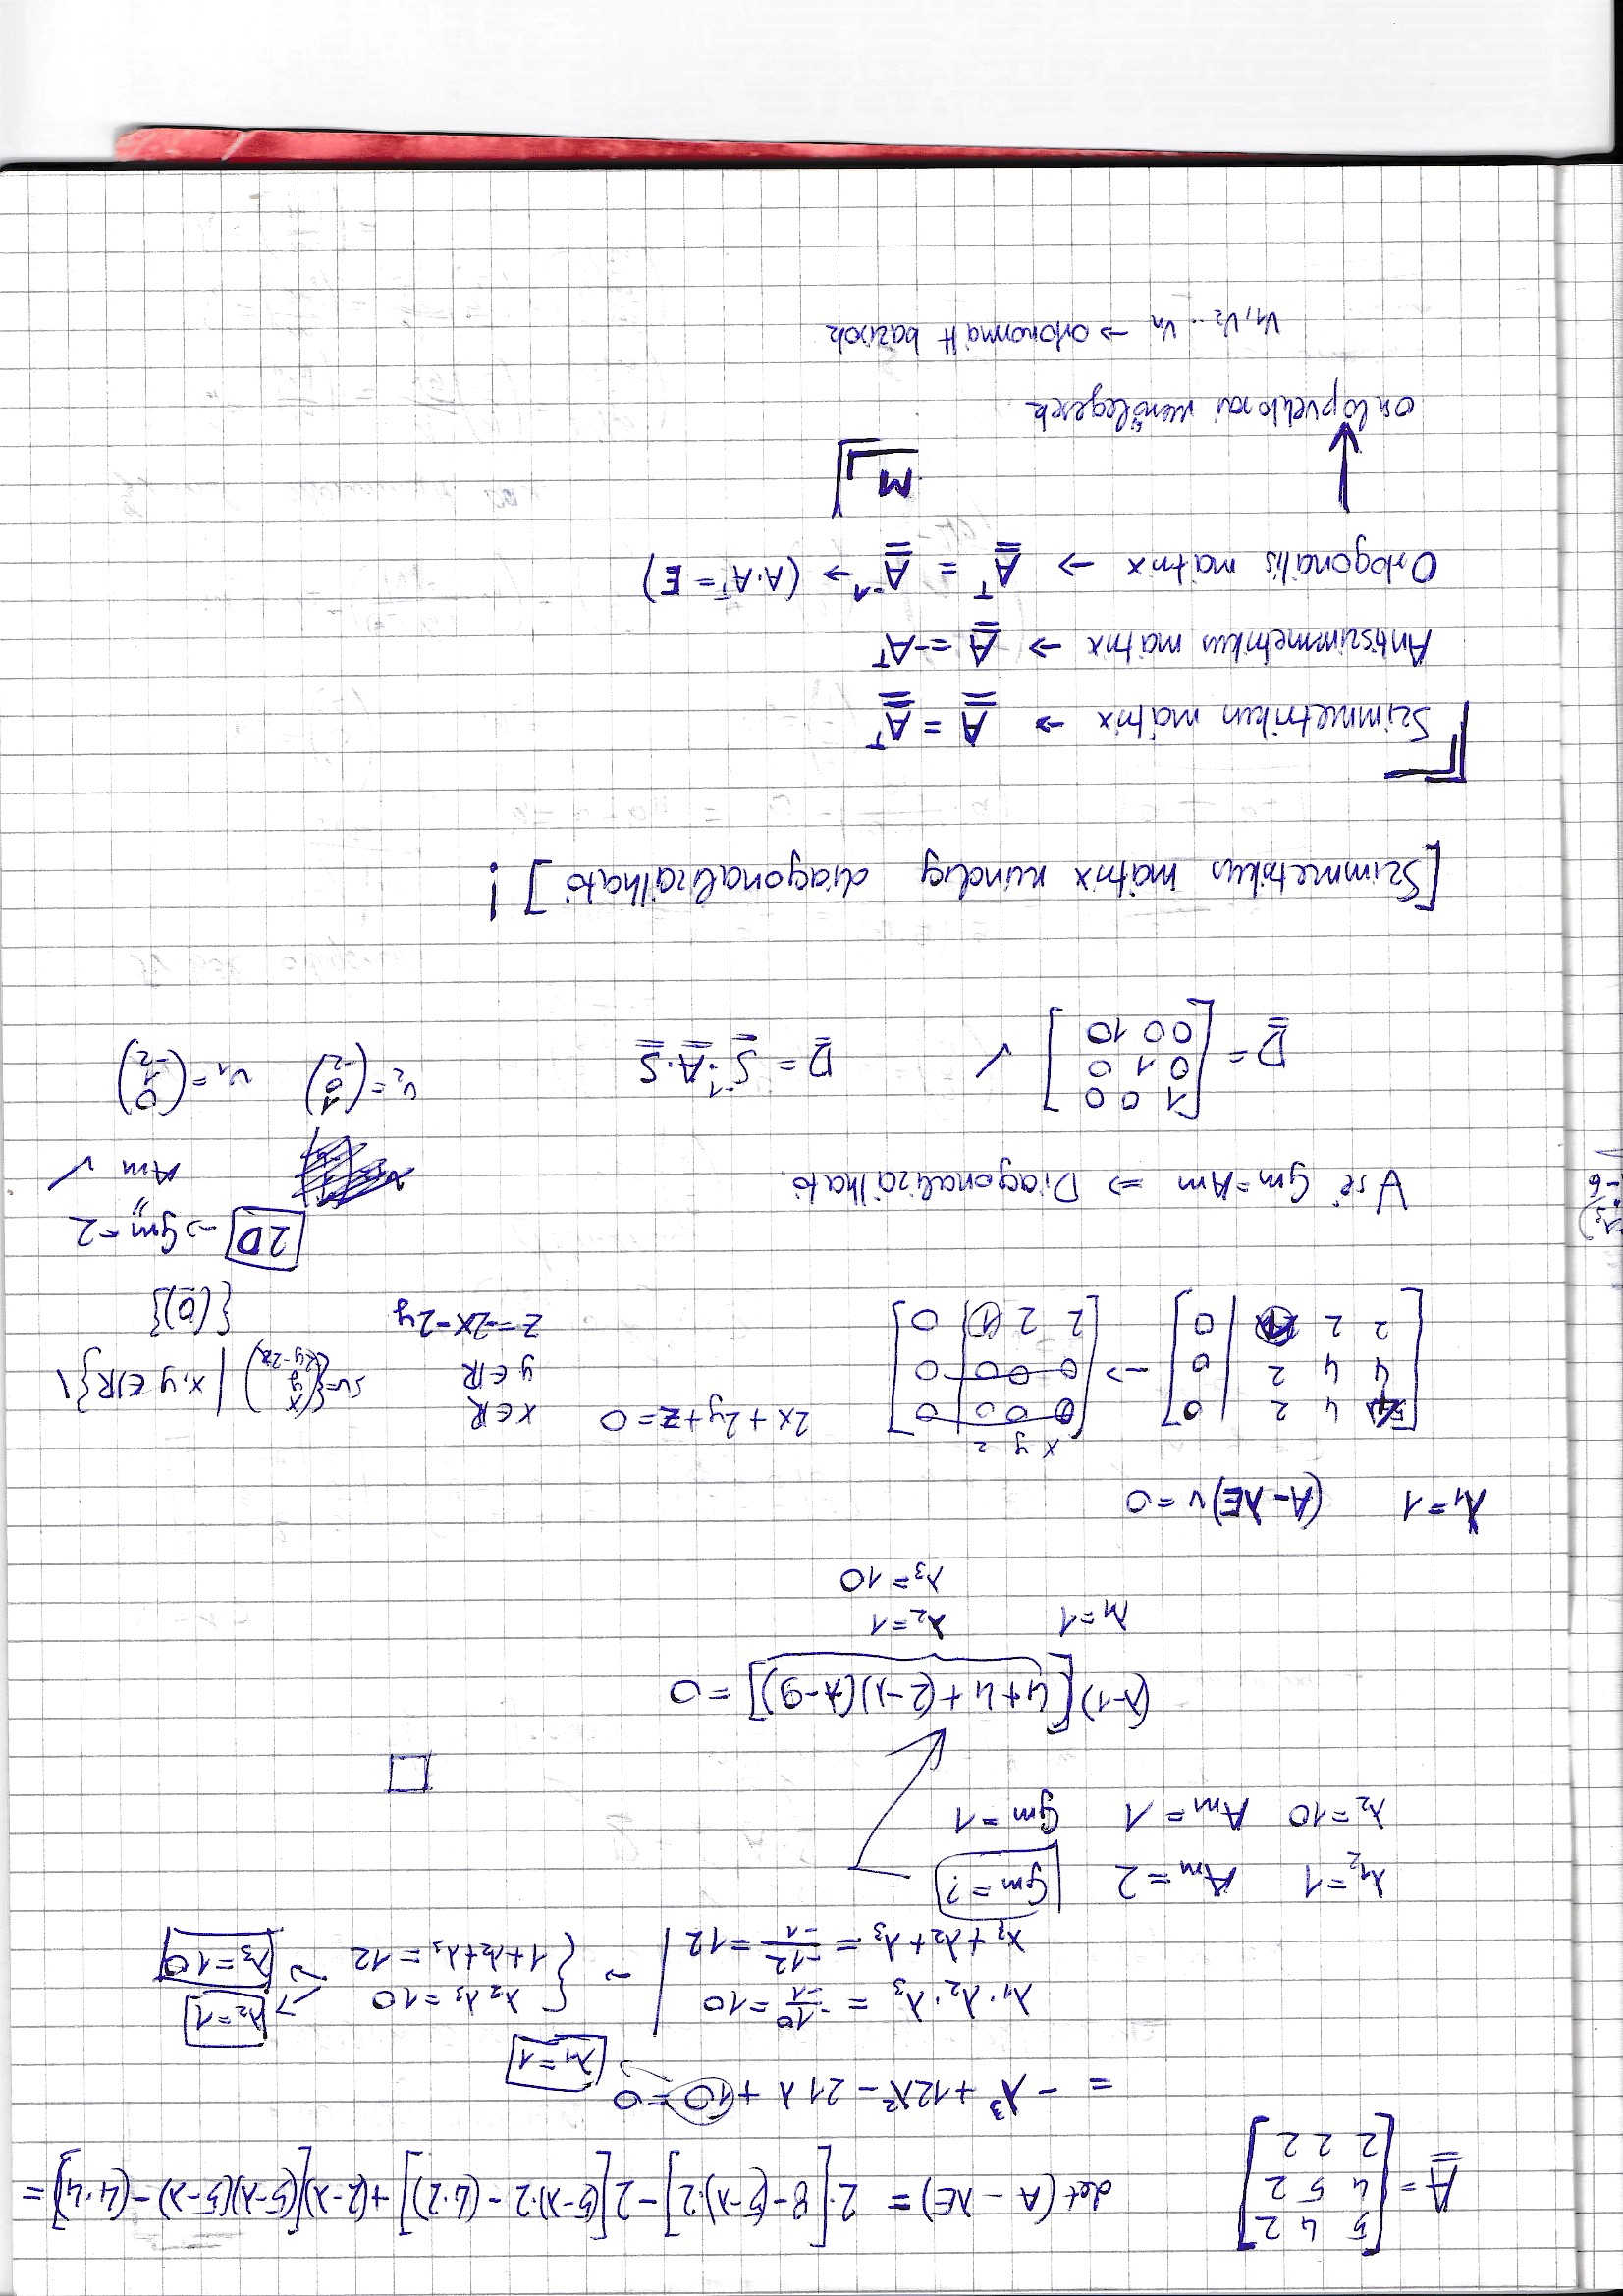 A = [5 4 2
4 5 2
2 2 2]
det(A - λE) = 2·[8-(5-λ)·2] - 2[(5-λ)·2 - (4·2)] + (2-λ)[(5-λ)(5-λ) - (4·4)] =
= -λ³ + 12λ² - 21λ + 10 = 0
λ₁ = 1
λ₁·λ₂·λ₃ = -10/-1 = 10
λ₁+λ₂+λ₃ = -12/-1 = 12
→ { λ₂λ₃ = 10
1+λ₂+λ₃ = 12
λ₂ = 1
λ₃ = 10
λ₁₂ = 1 Am = 2 Gm = ?
λ₂ = 10 Am = 1 Gm = 1
(λ-1)[4+4+(2-λ)(λ-9)] = 0
λ₁ = 1 λ₂ = 1
λ₃ = 10
λ₁ = 1 (A - λE)v = 0
x y z
[4 4 2 | 0
4 4 2 | 0
2 2 1 | 0] → [0 0 0 | 0
0 0 0 | 0
2 2 1 | 0]
2x + 2y + z = 0
x ∈ ℝ
y ∈ ℝ
z = -2x - 2y
sv = {(x
y
| x, y ∈ ℝ} \
{(0)}
2D → Gm = 2
"
Am ✓
∀ sé Gm = Am ⇒ Diagonalizálható.
D = [1 0 0
0 1 0
0 0 10] ✓
D = S⁻¹·A·S
v₂ = (1
0
-2)
v₁ = (0
1
-2)
[Szimmetrikus mátrix mindig diagonalizálható]!
Szimmetrikus mátrix → A = Aᵀ
Antiszimmetrikus mátrix → A = -Aᵀ
Ortogonális mátrix → Aᵀ = A⁻¹ → (A·Aᵀ = E)
M
oszlopvektorai merőlegesek
v₁, v₂ .. vₙ → ortonormált bázisok